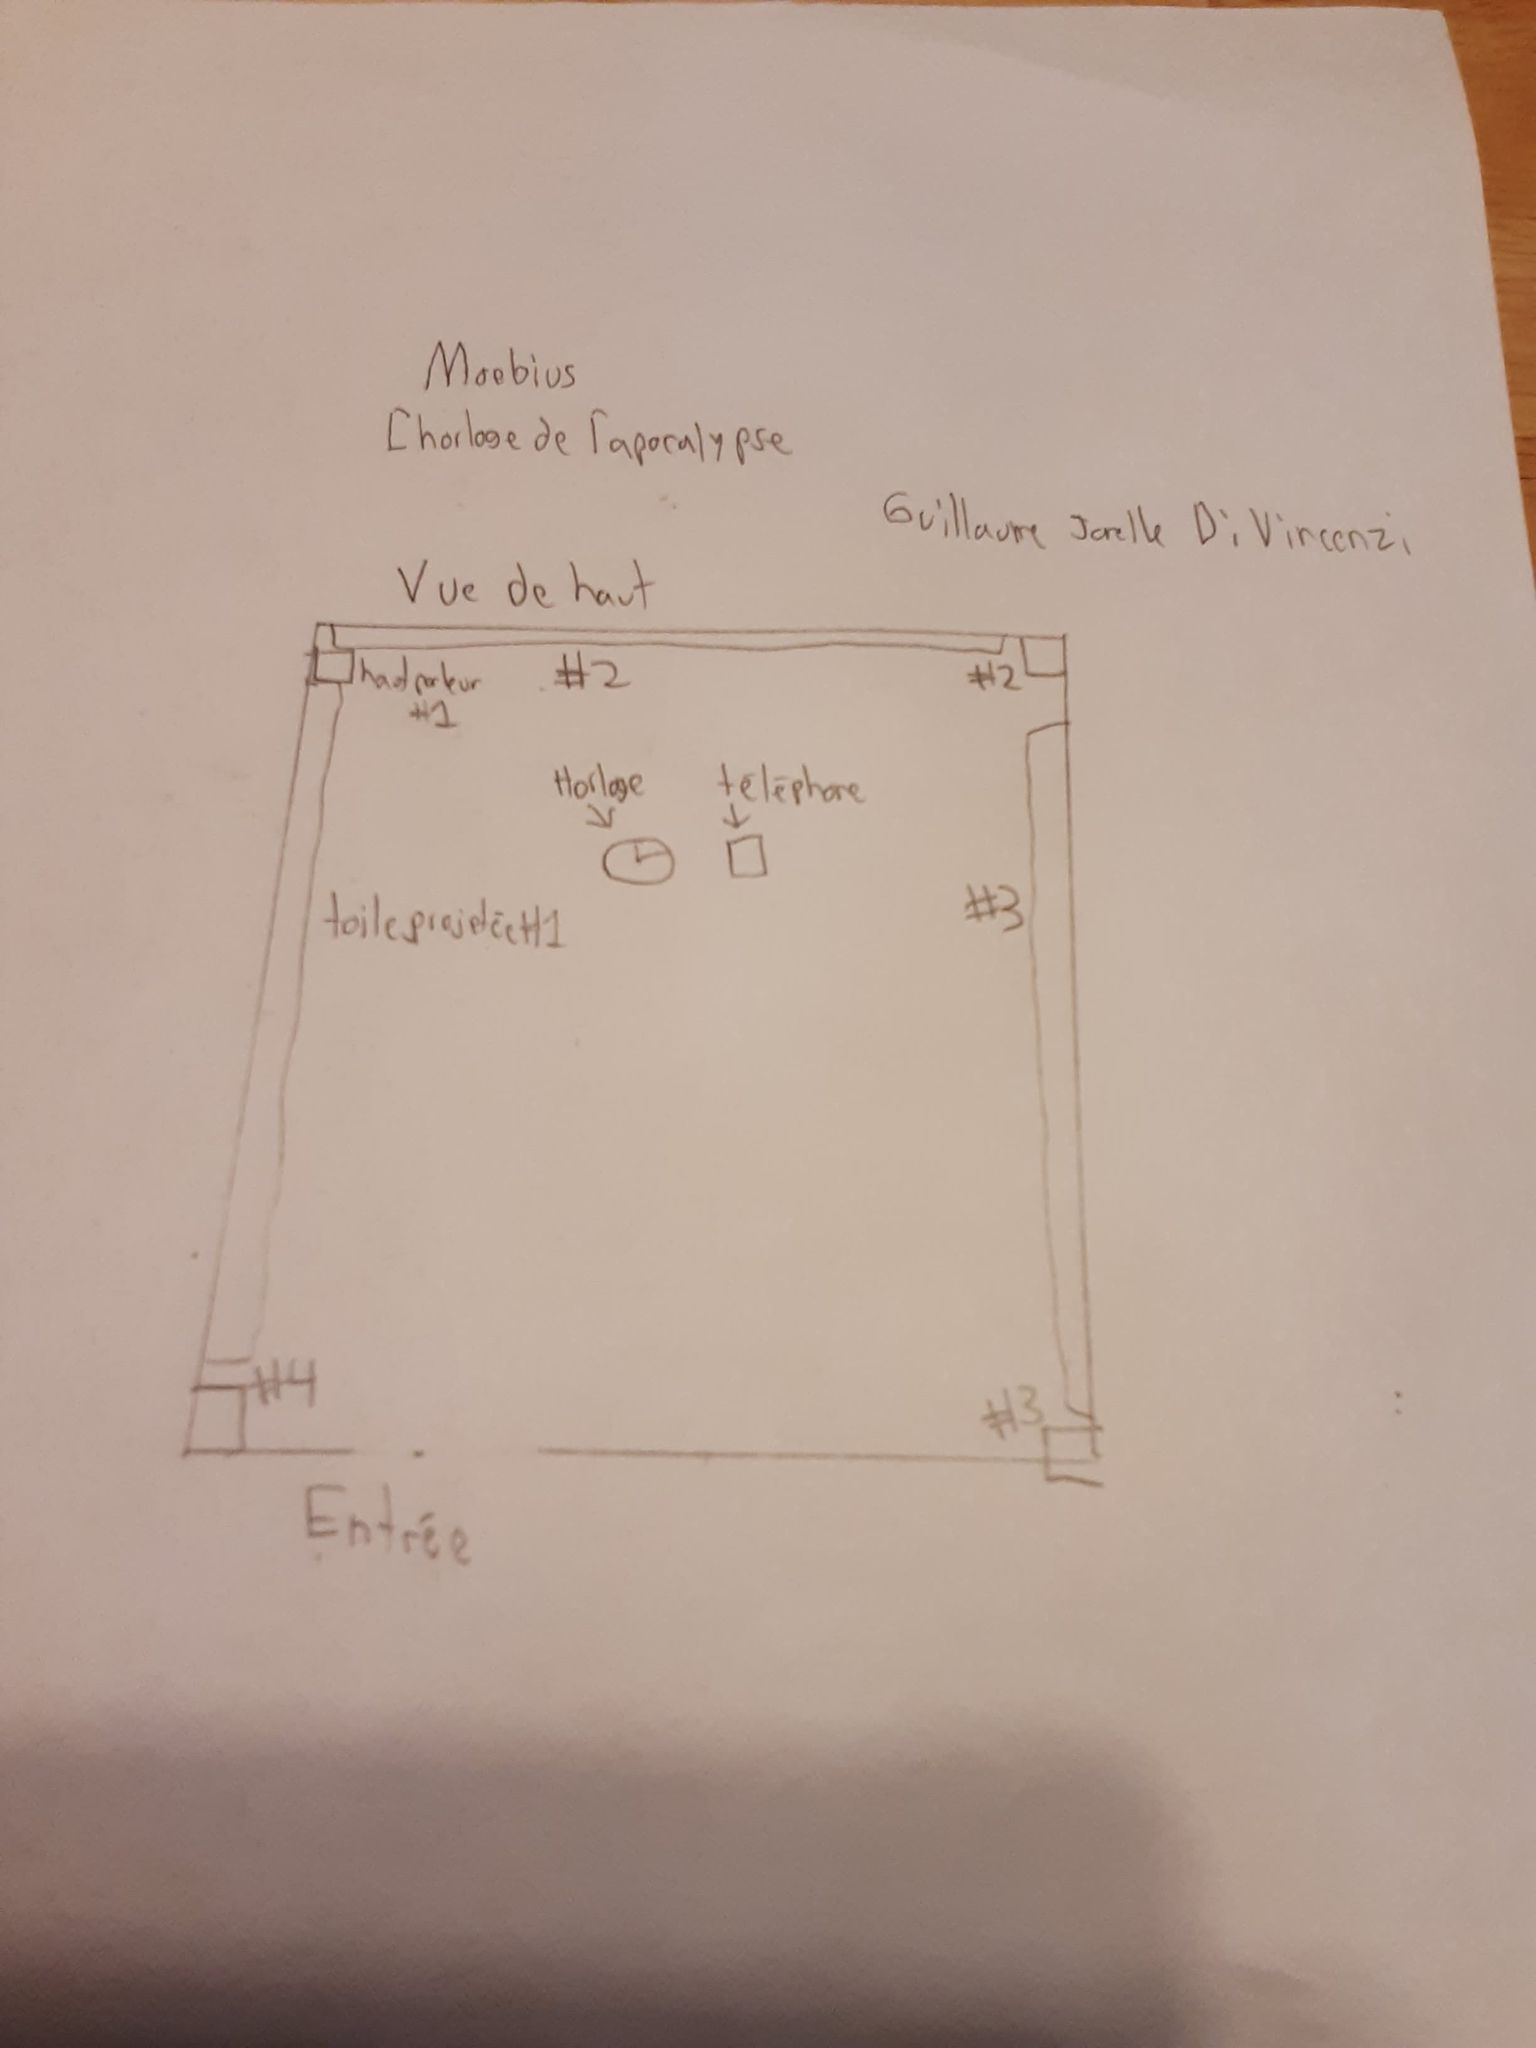 Moebius
L'horloge de l'apocalypse
Guillaume Jarelle Di Vincenzi
Vue de haut
hautparleur
#1
#2
#2
Horloge
téléphone
toile projetée #1
#3
#4
#3
Entrée